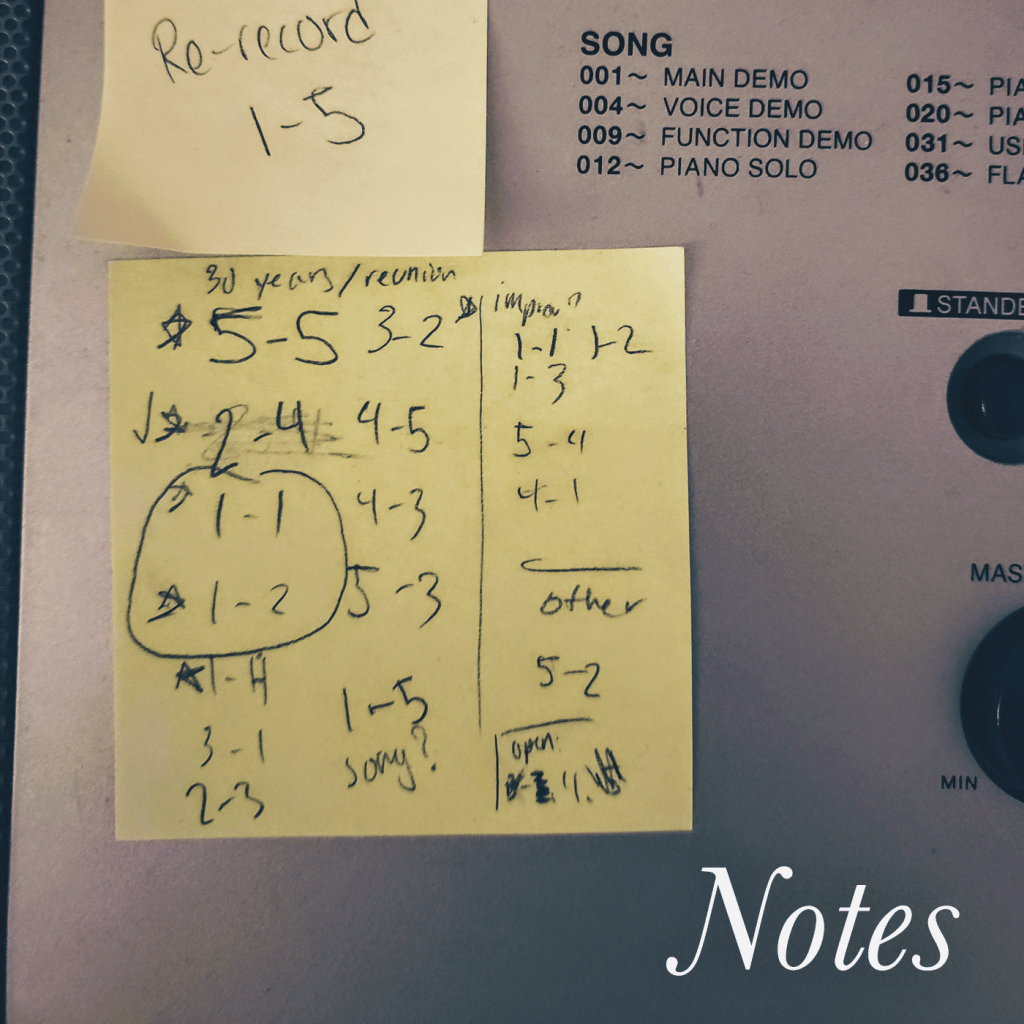 Re-record
1-5
SONG
001~ MAIN DEMO
004~ VOICE DEMO
009~ FUNCTION DEMO
012~ PIANO SOLO
015~ PIA
020~ PIA
031~ USE
036~ FLA
STANDB
MAS
MIN
30 years/reunion
5-5 3-2
2-4 4-5
1-1 4-3
1-2 5-3
1-4
3-1
2-3
1-5
song?
1-1 1-2
1-3
5-4
4-1
other
5-2
open:
Notes